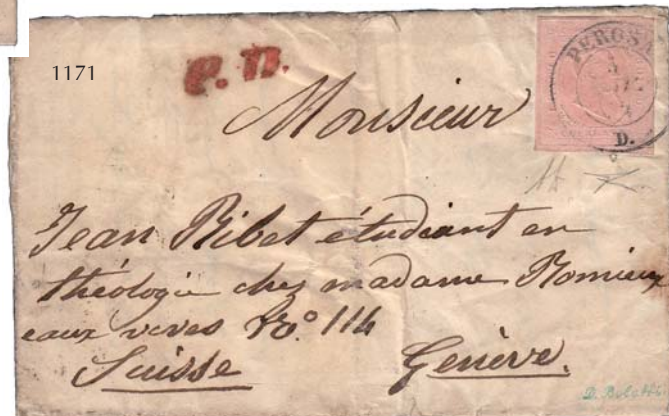 1171
P.D.
PEROSA
D.
Monsieur
Jean Ribet étudiant en
théologie chez madame Romieux
eaux vives No. 114
Suisse Genève.